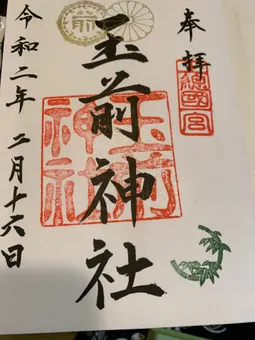 奉拝
總國宮
玉前神社
玉前神社
令和二年 二月十六日